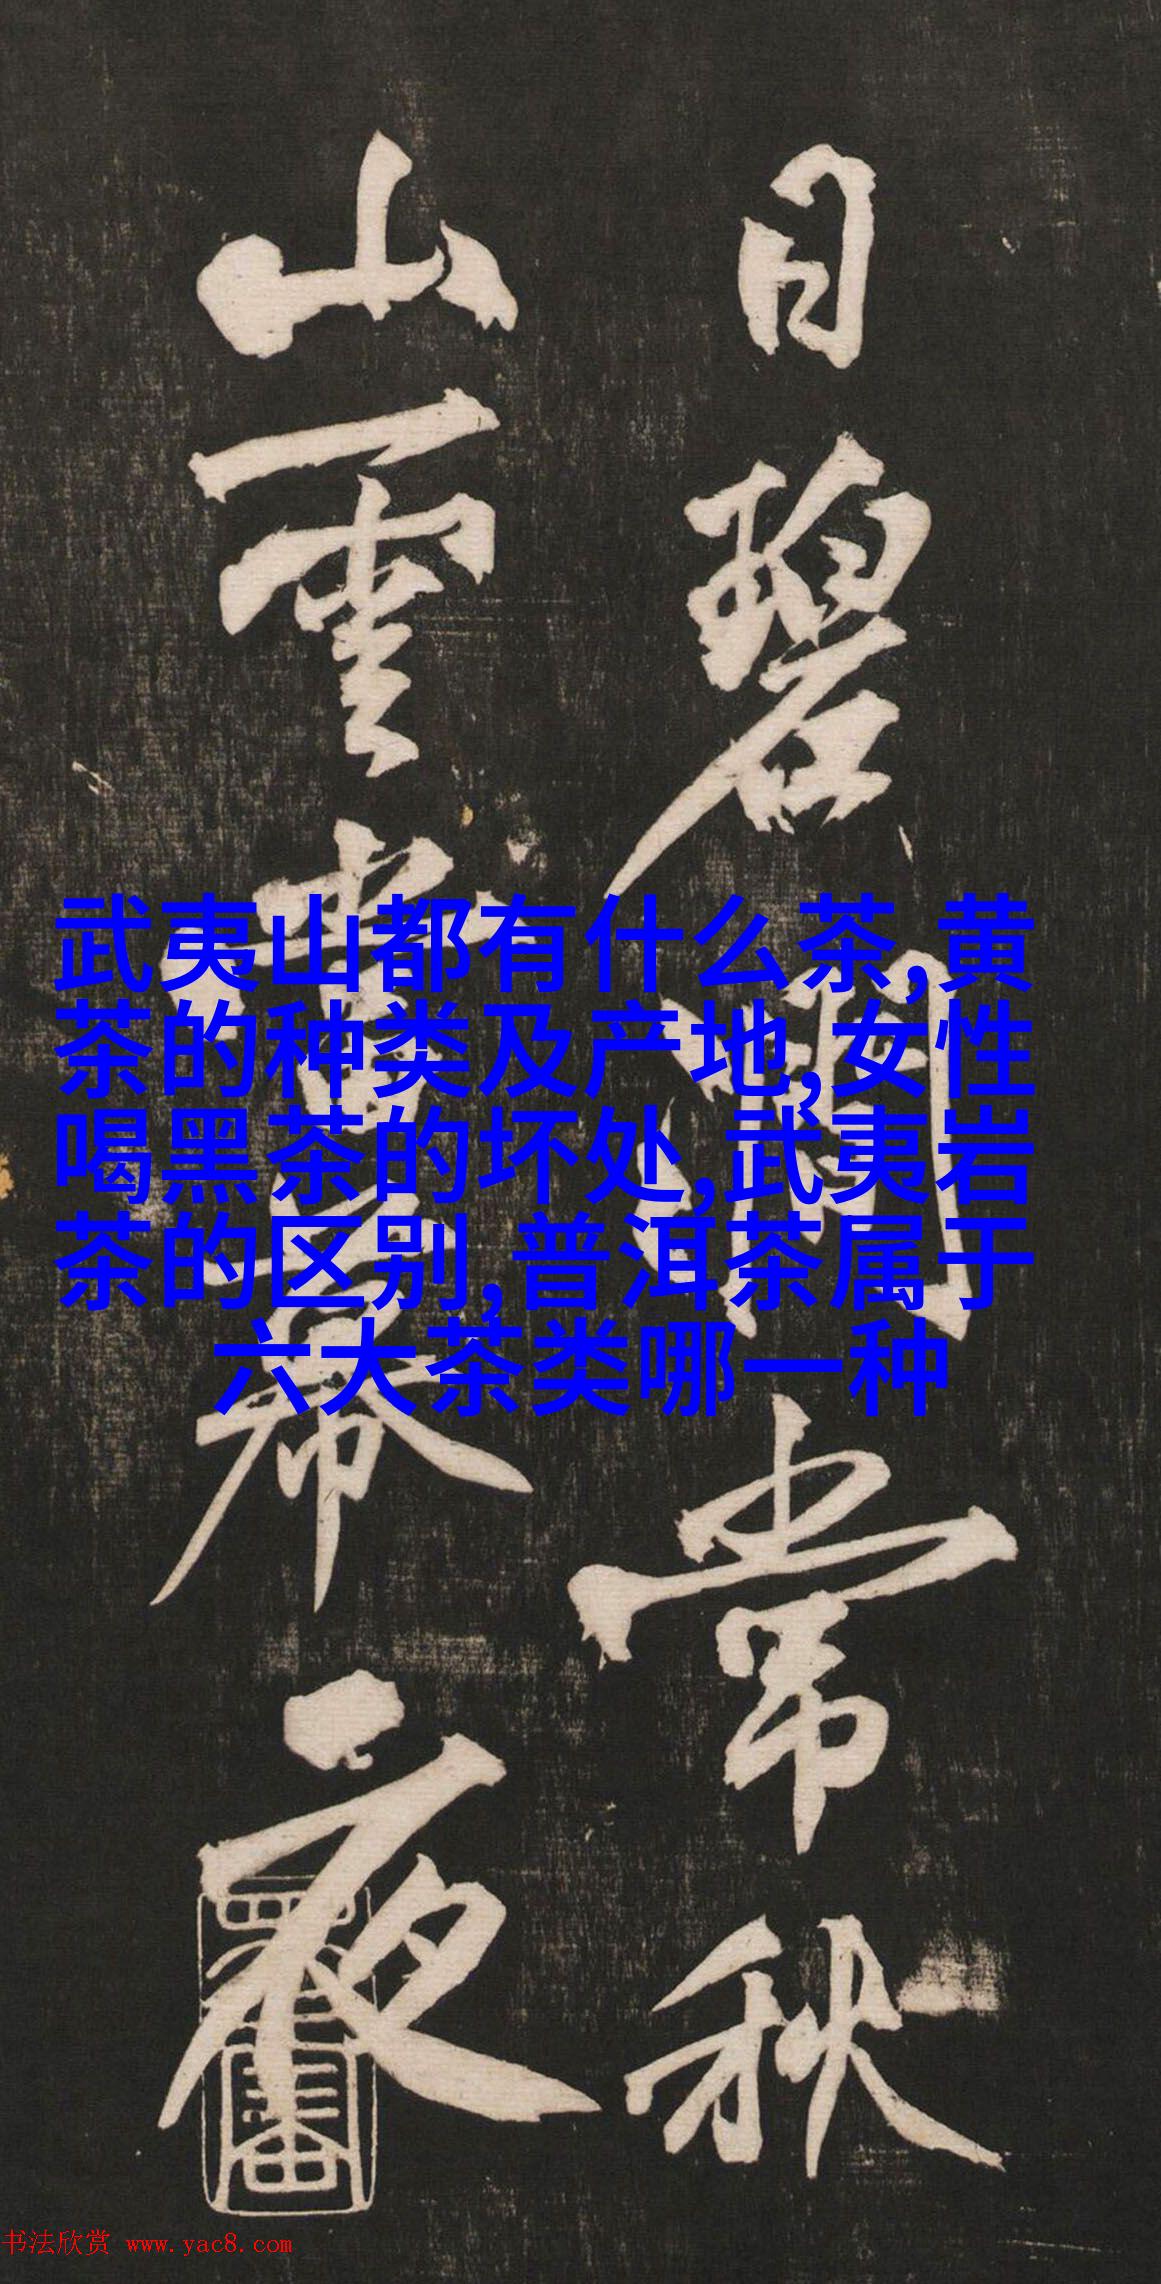 日碧澗常秋
山雲當幕夜
武夷山都有什么茶,黄
茶的种类及产地,女性
喝黑茶的坏处,武夷岩
茶的区别,普洱茶属于
六大茶类哪一种
书法欣赏 www.yac8.com